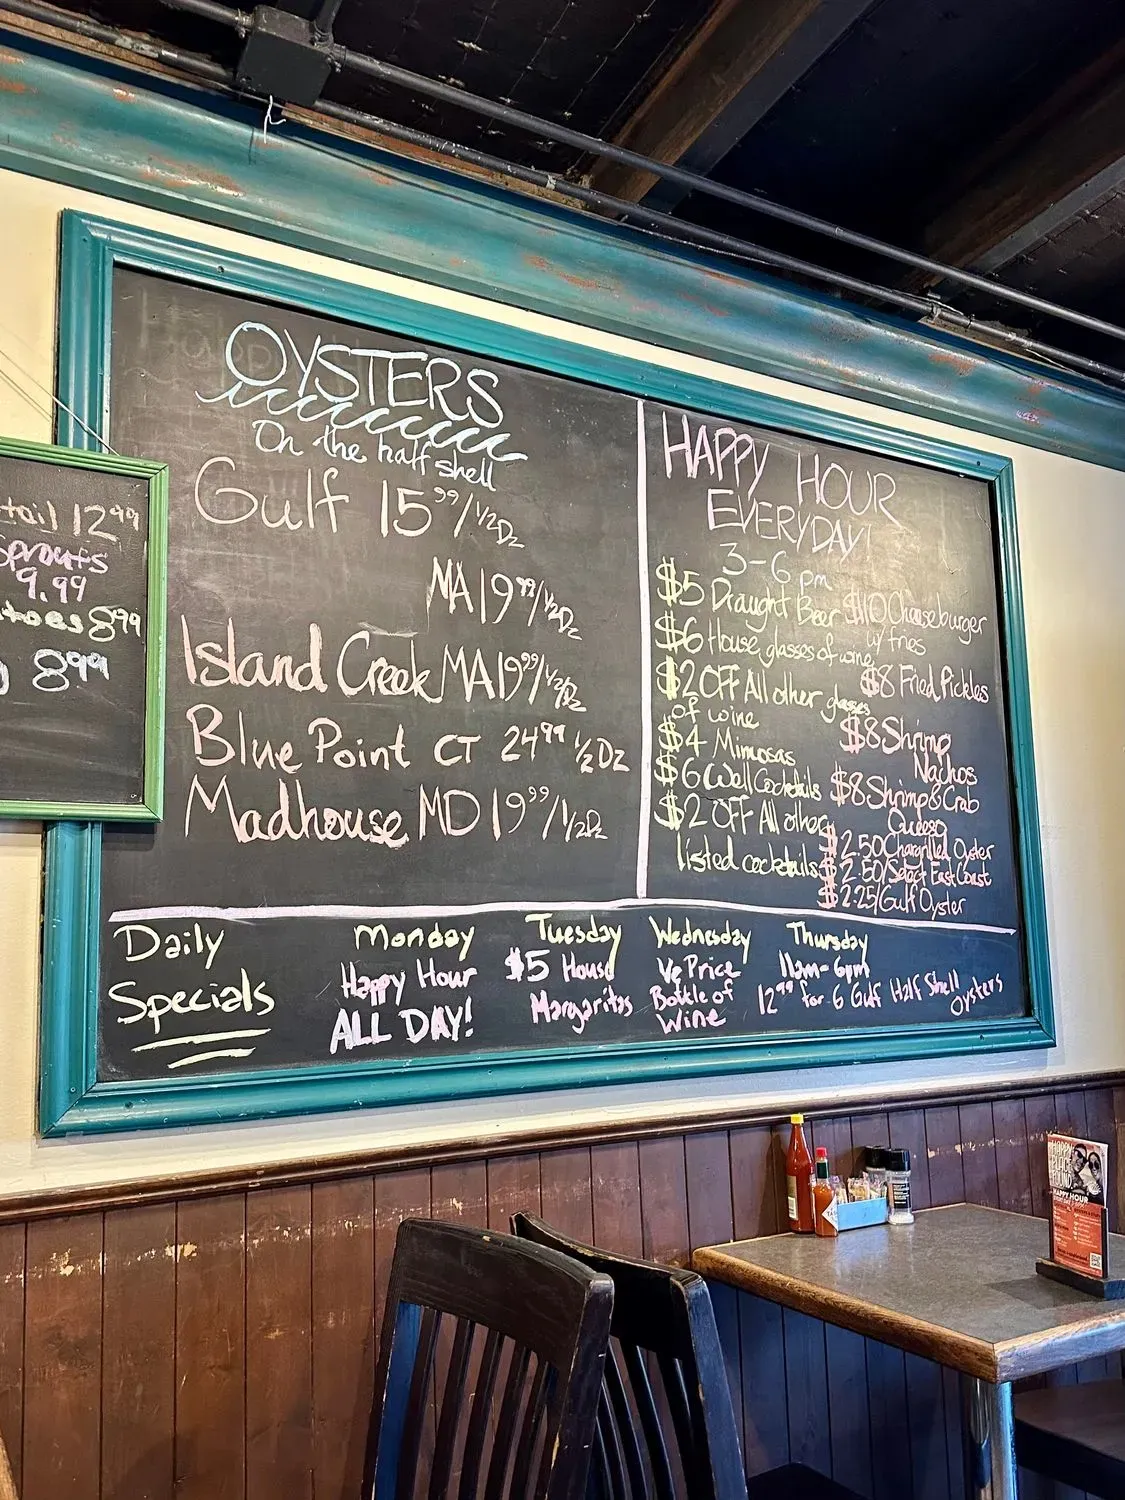 tail 12⁹⁹
Sprouts
9.99
toes 8⁹⁹
8⁹⁹
OYSTERS
On the half shell
Gulf 15⁹⁹/½Dz
MA 19⁹⁹/½Dz
Island Creek MA 19⁹⁹/½Dz
Blue Point CT 24⁹⁹ ½Dz
Madhouse MD 19⁹⁹/½Dz
HAPPY HOUR
EVERYDAY!
3-6 pm
$5 Draught Beer
$6 House glasses of wine
$2 OFF All other glasses
of wine
$4 Mimosas
$6 Well Cocktails
$2 OFF All other
listed cocktails
$10 Cheeseburger
w/ fries
$8 Fried Pickles
$8 Shrimp
Nachos
$8 Shrimp & Crab
Queso
$2.50 Chargrilled Oyster
$2.50/Select East Coast
$2.25/Gulf Oyster
Daily
Specials
Monday
Happy Hour
ALL DAY!
Tuesday
$5 House
Margaritas
Wednesday
½ Price
Bottle of
Wine
Thursday
11am-6pm
12⁹⁹ for 6 Gulf Half Shell
Oysters
HAPPY HOUR